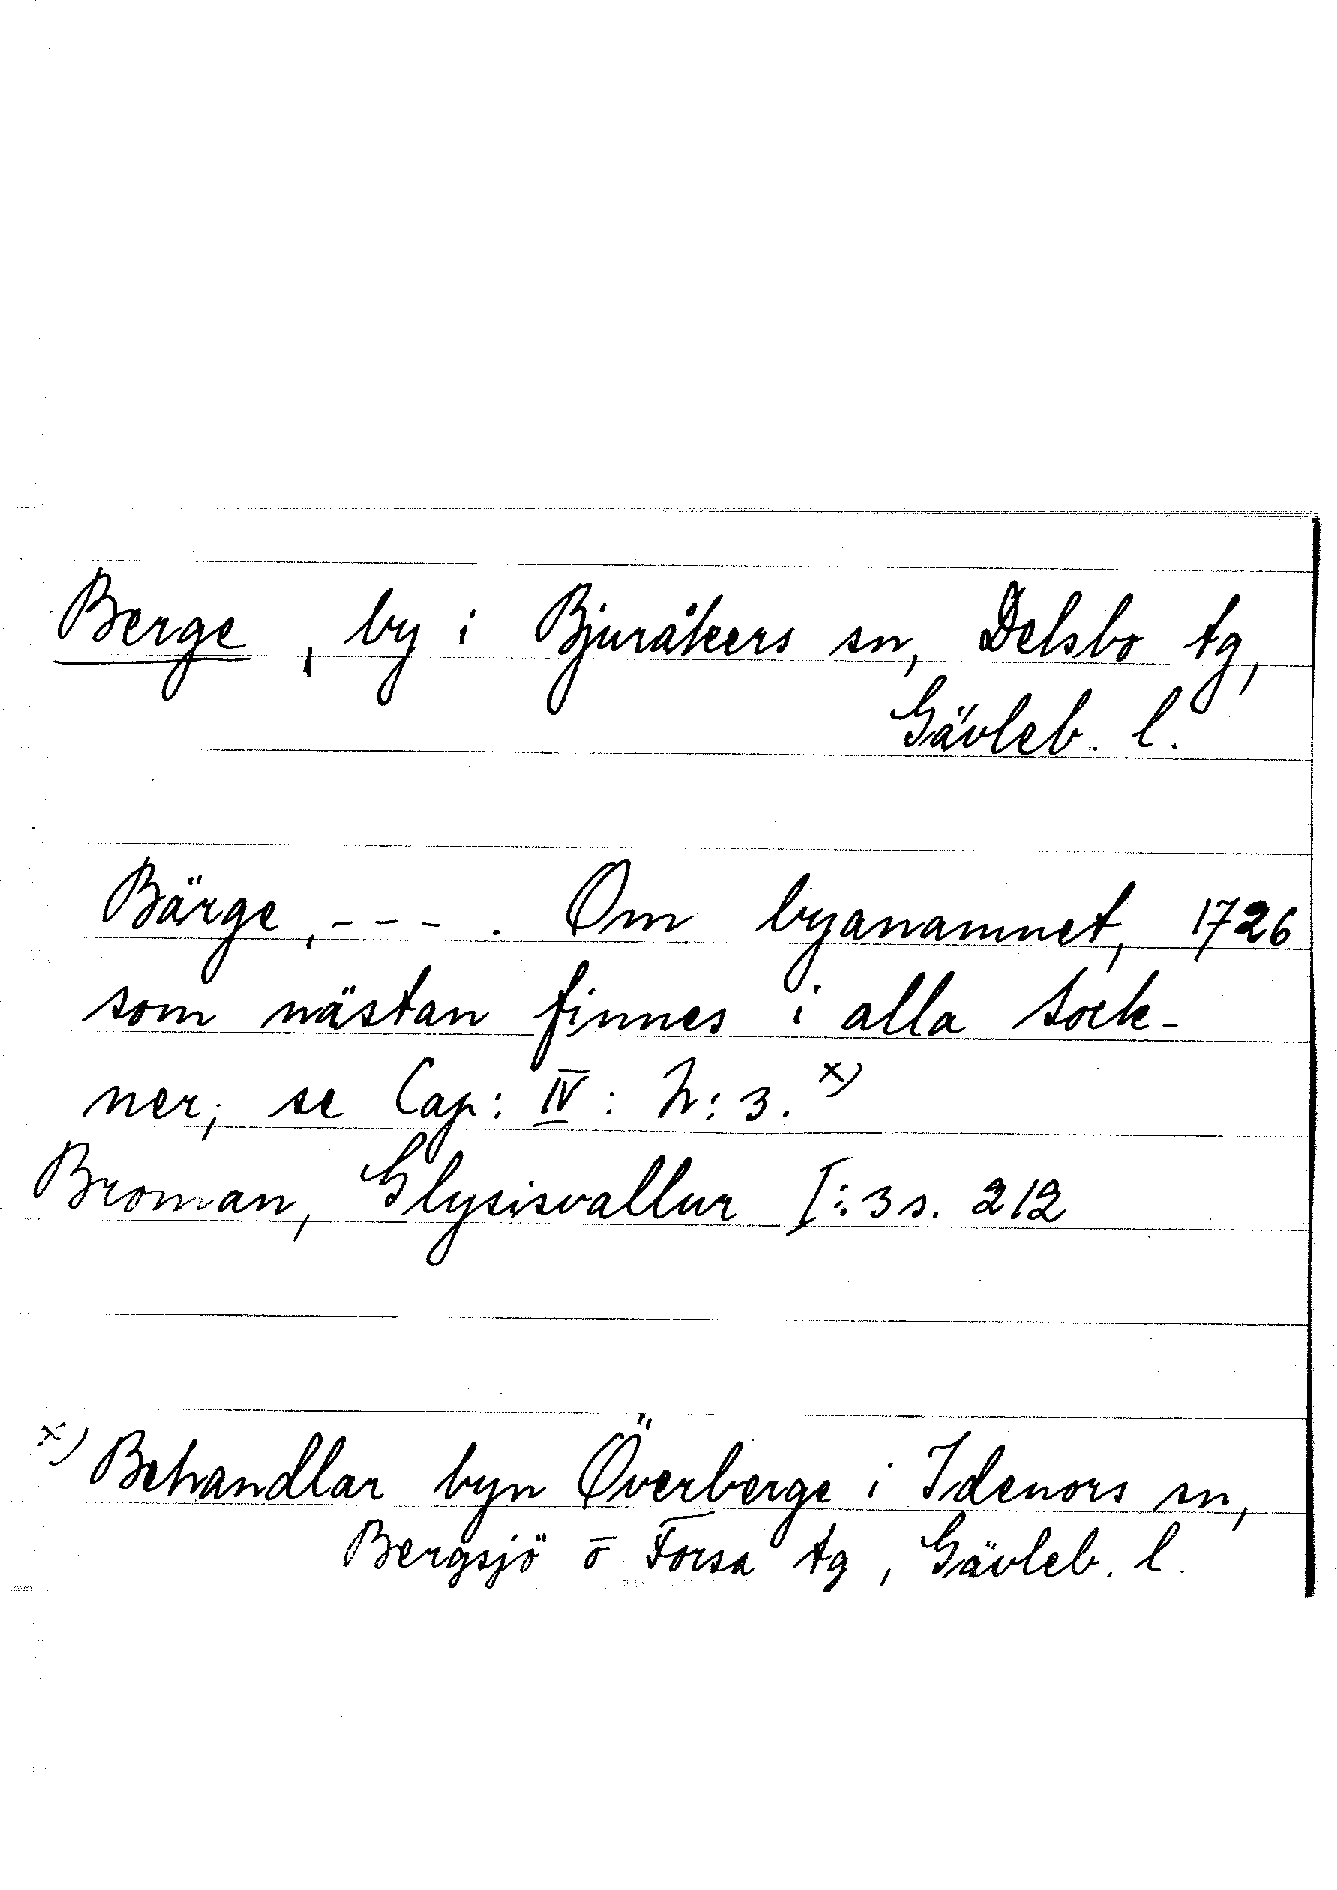 Berge, by i Bjuråkers sn, Delsbo tg,
Gävleb. l.
Bärge, - - - . Om byanamnet, 1726
som nästan finnes i alla sock-
ner, se Cap: IV : h: 3. x)
Broman, Glysisvallur I:3 s. 212
x) Behandlar byn Överberge i Idenors sn,
Bergsjö o Forsa tg, Gävleb. l.